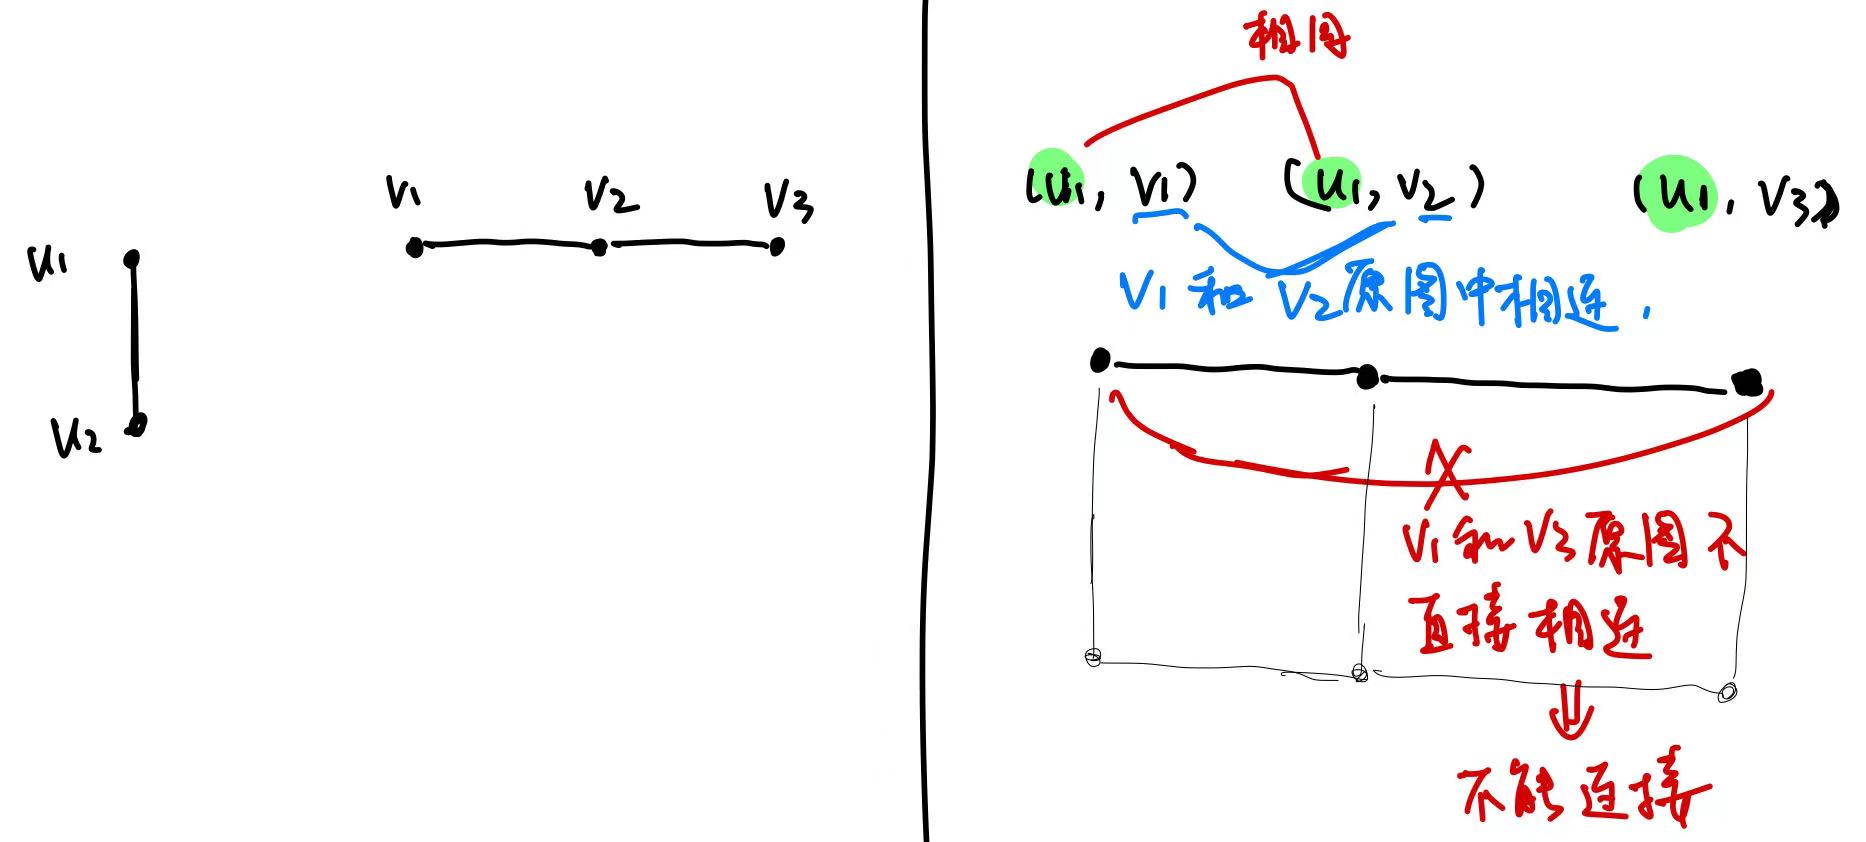 v1 v2 v3
u1
u2
相同
(u1, v1) (u1, v2) (u1, v3)
v1 和 v2 原图中相连.
v1 和 v3 原图不
直接相连
不能连接